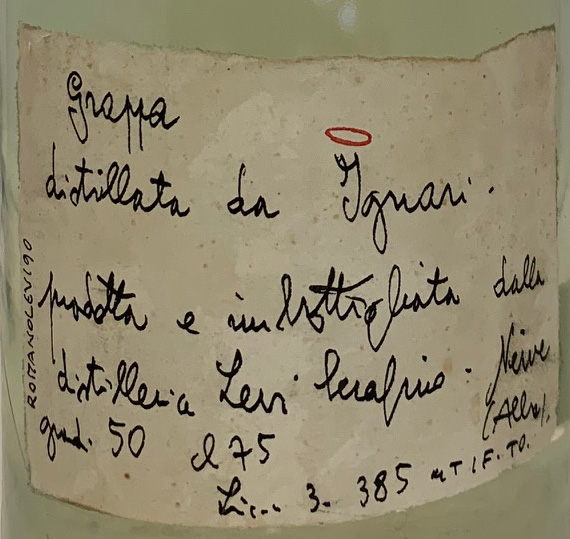 Grappa
distillata da Ignari.
prodotta e imbottigliata dalla
distilleria Levi Serafino. Neive
(Alba).
grad. 50 cl 75
Lic.. 3. 385 UTIF. TO.
ROMANOLEVI90